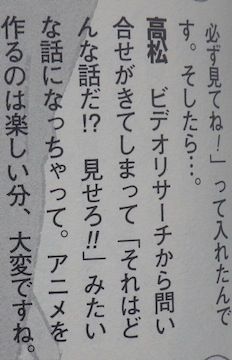 必ず見てね！」って入れたんで
す。そしたら…。
高松　ビデオリサーチから問い
合せがきてしまって「それはど
んな話だ!?　見せろ!!」みたい
な話になっちゃって。アニメを
作るのは楽しい分、大変ですね。